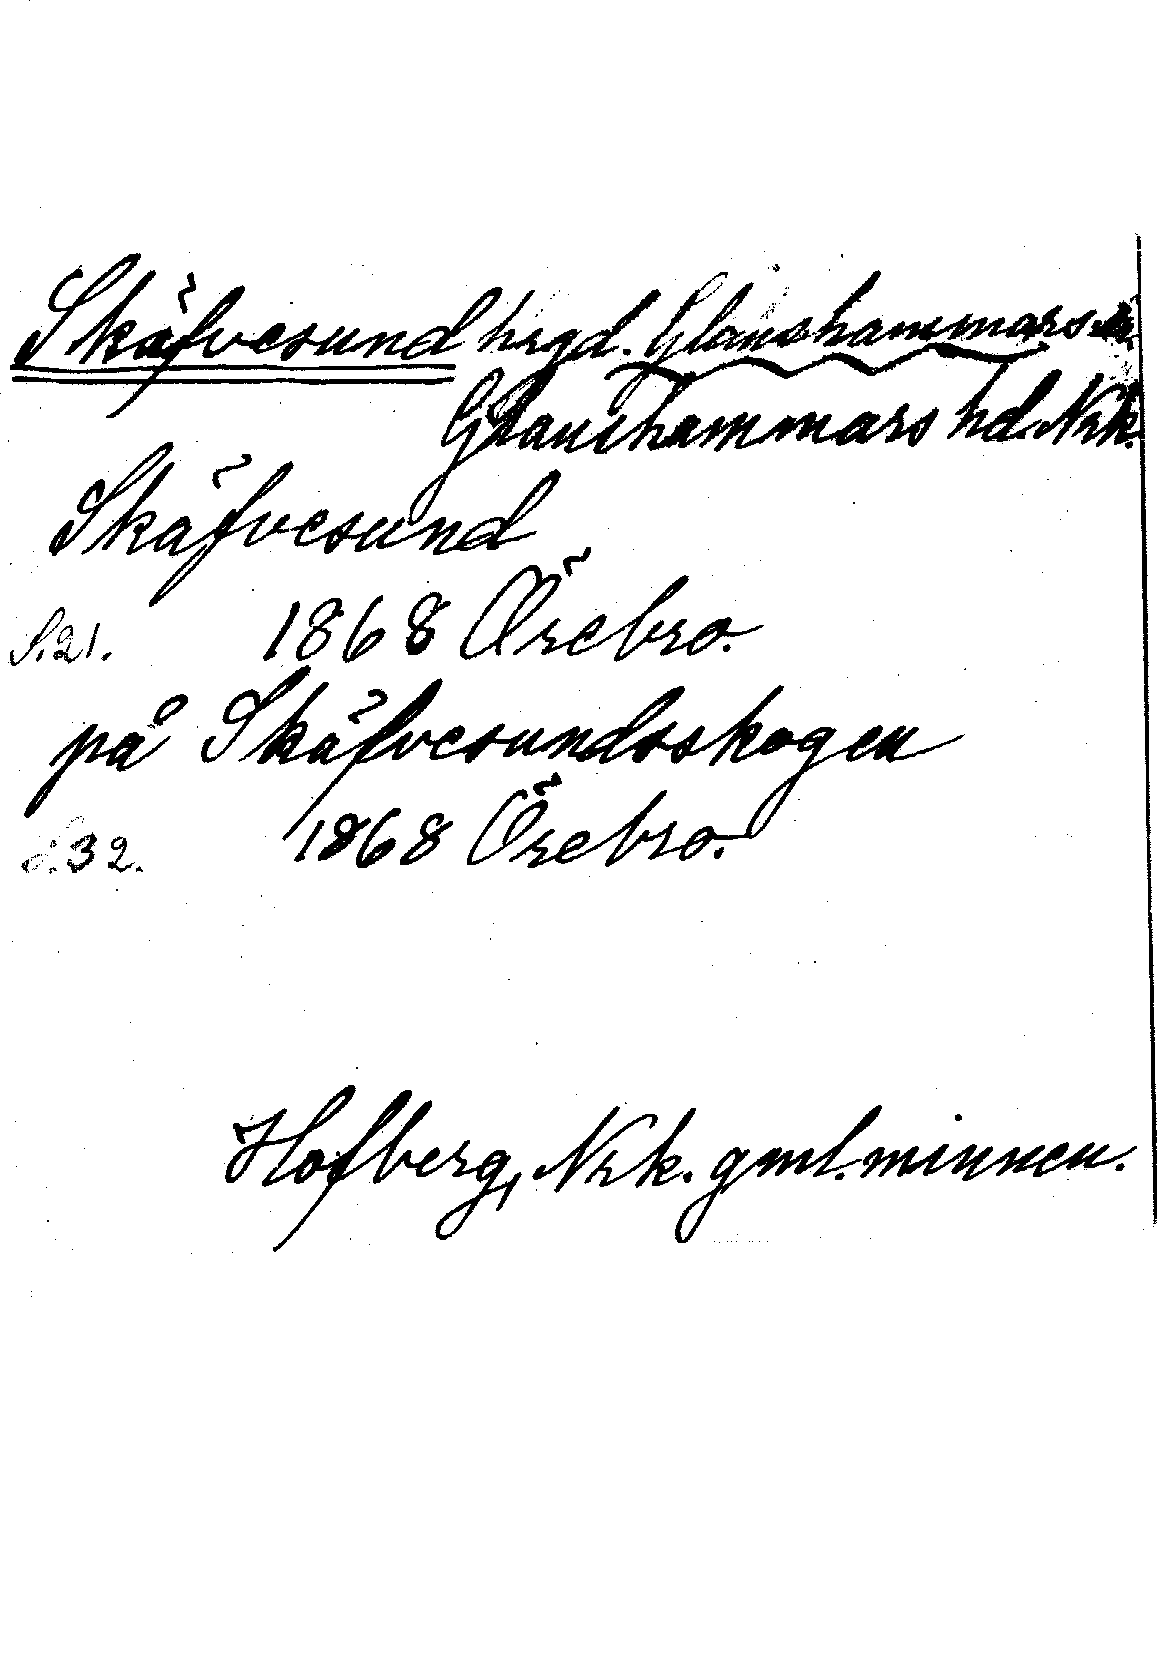 Skäfvesund hrgd. Glanshammars sn.
Glanshammars hd. Nrk.
Skäfvesund
S. 21. 1868 Örebro.
på Skäfvesundsskogen
S. 32. 1868 Örebro.
Hofberg, Nrk. gml. minnen.